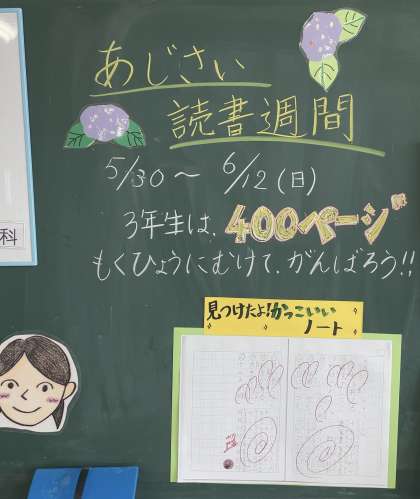 あじさい
読書週間
5/30～6/12(日)
3年生は、400ページ
もくひょうにむけて、がんばろう!!
科
見つけたよ!かっこいい
ノート